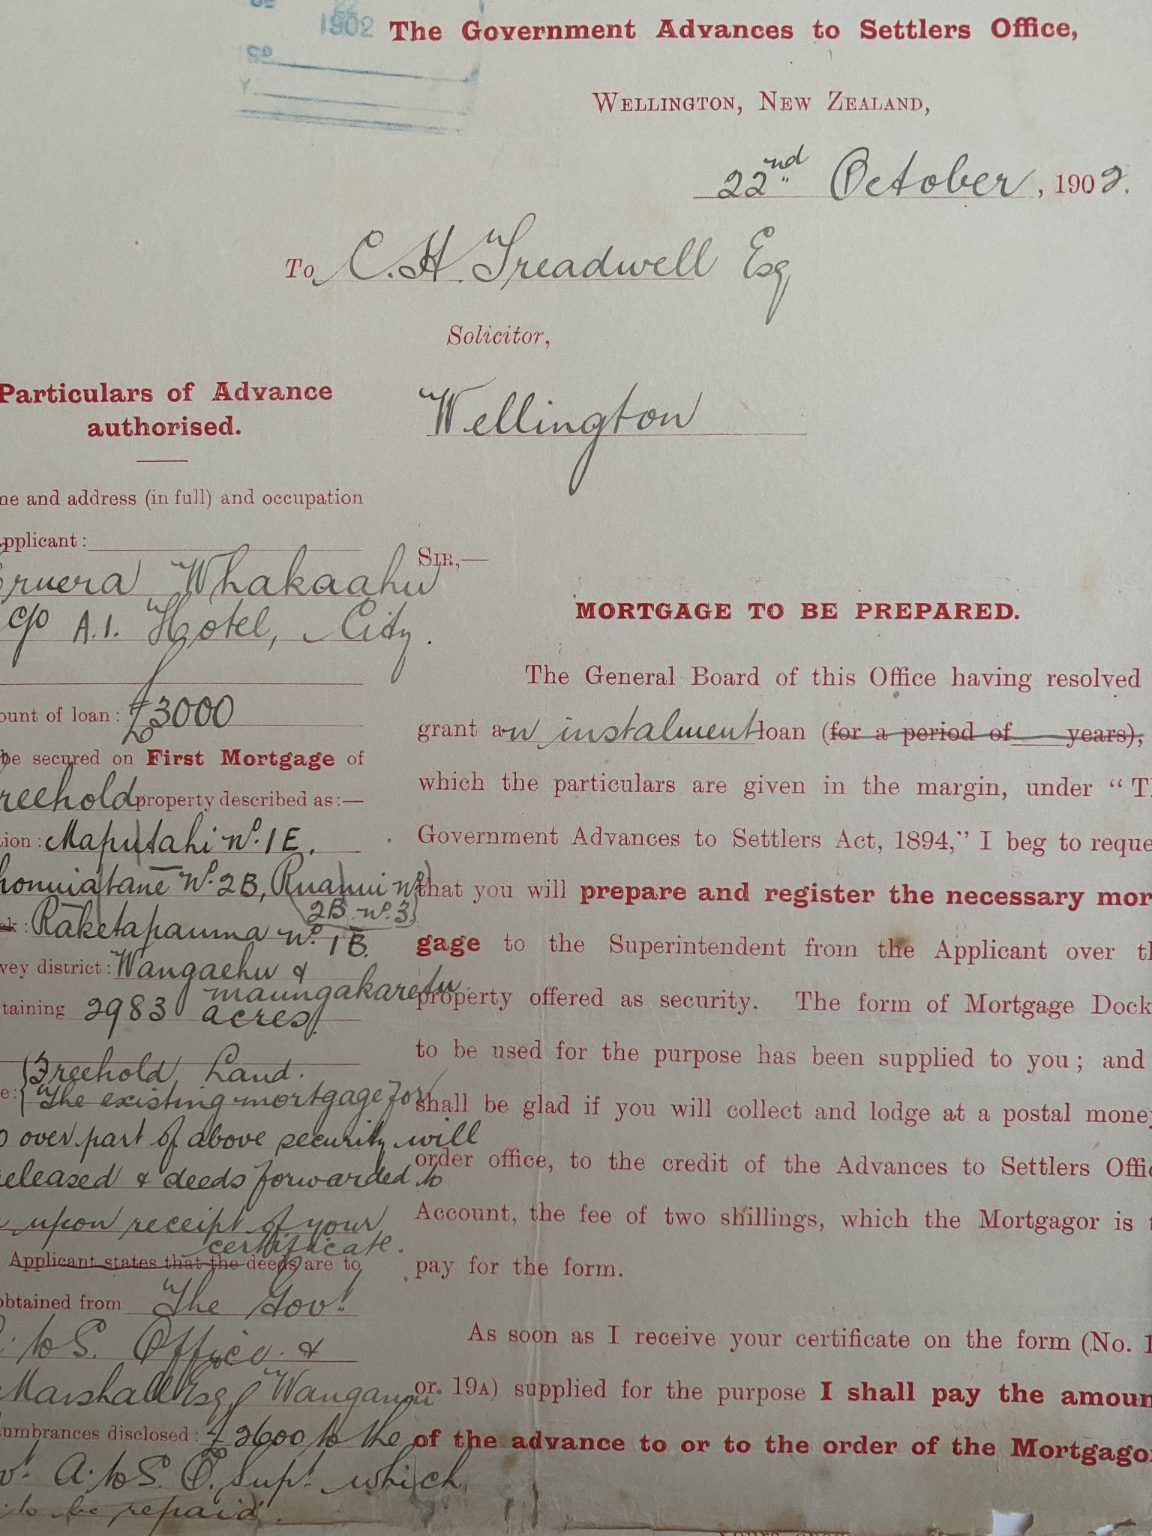 1902
The Government Advances to Settlers Office,
Wellington, New Zealand,
22nd October, 1902.
To C. H. Treadwell Esq
Solicitor,
Wellington
Particulars of Advance
authorised.
ne and address (in full) and occupation
pplicant:
ruera Whakaahu
c/o A.1. Hotel, City.
ount of loan: £3000
be secured on First Mortgage of
reehold property described as:—
ion: Maputahi No. 1E.
honuiatane No. 2B, Ruanui No
2B No. 3
k: Raketapauma No. 1B.
vey district: Wangaehu &
maungakaretu
taining 2983 acres
Freehold Land.
e: The existing mortgage for
0 over part of above security will
eleased & deeds forwarded to
upon receipt of your
certificate.
Applicant states that the deeds are to
obtained from The Govt
. to S. Office &
Marshall Esq Wanganui
umbrances disclosed: £2600 to the
vt A. to S. O. Supt which
to be repaid.
Sir,—
MORTGAGE TO BE PREPARED.
The General Board of this Office having resolved
grant an instalment loan (for a period of years),
which the particulars are given in the margin, under "T
Government Advances to Settlers Act, 1894," I beg to reque
that you will prepare and register the necessary mor
gage to the Superintendent from the Applicant over t
property offered as security. The form of Mortgage Dock
to be used for the purpose has been supplied to you; and
shall be glad if you will collect and lodge at a postal money
order office, to the credit of the Advances to Settlers Offi
Account, the fee of two shillings, which the Mortgagor is t
pay for the form.
As soon as I receive your certificate on the form (No. 1
or 19A) supplied for the purpose I shall pay the amoun
of the advance to or to the order of the Mortgago